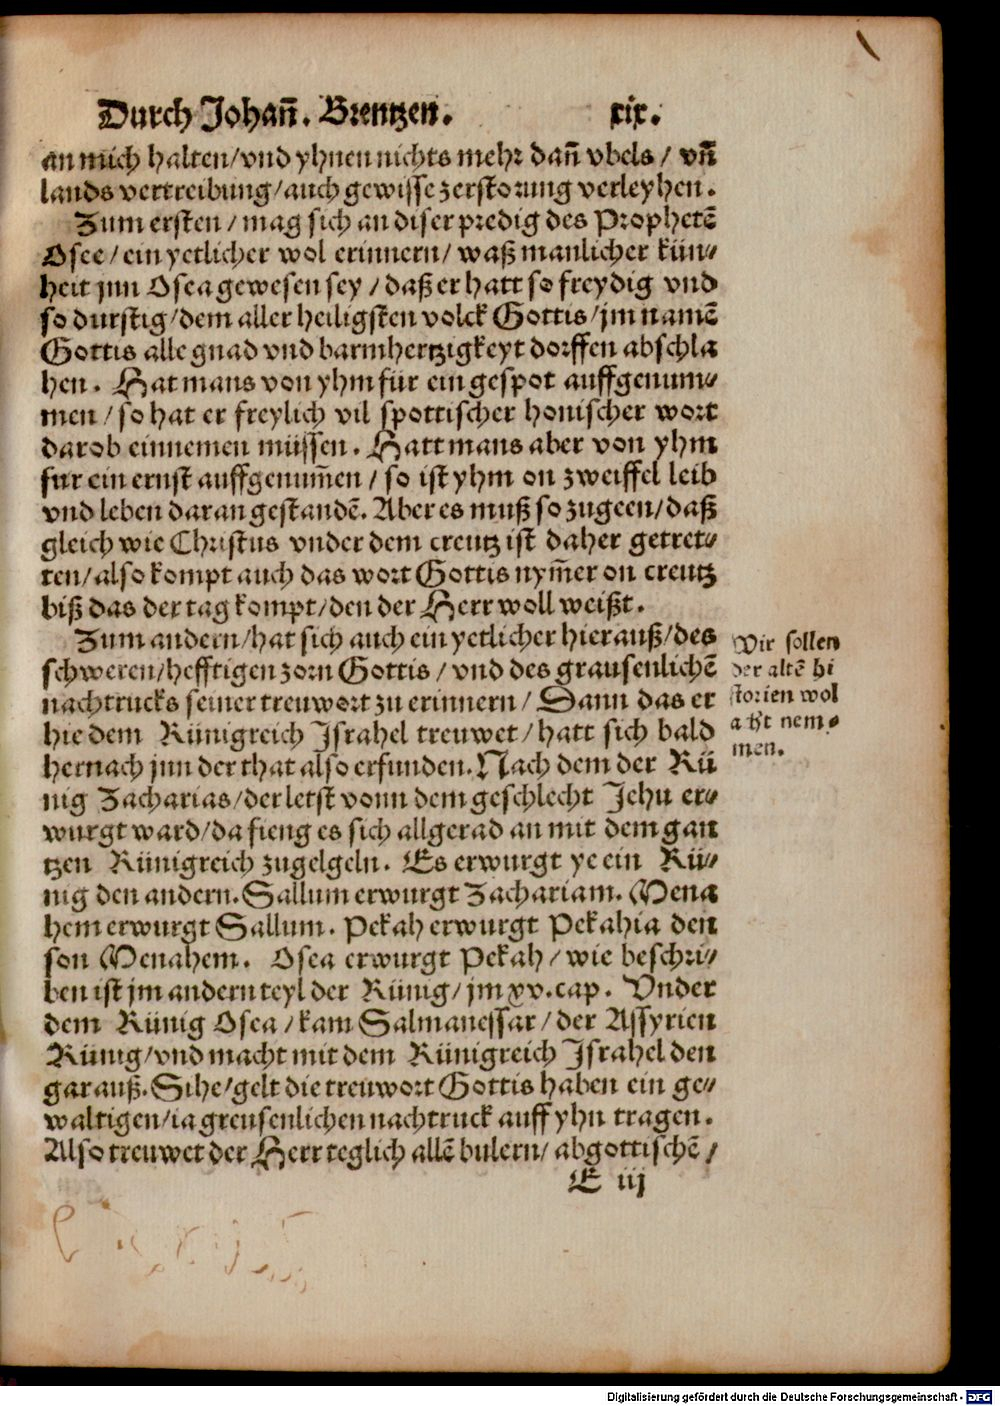 Durch Johañ. Brentzen. xix.
an mich halten/vnd yhnen nichts mehr dañ vbels/ vñ
lands vertreibung/auch gewisse zerstorung verleyhen.
Zum ersten/ mag sich an diser predig des Prophetẽ
Osee/ein yetlicher wol erinnern/ waß manlicher kün⸗
heit jnn Osea gewesen sey/daß er hatt so freydig vnd
so durstig/dem aller heiligsten volck Gottis/jm namẽ
Gottis alle gnad vnd barmhertzigkeyt dorffen abschla
hen. Hat mans von yhm für ein gespot auffgenum⸗
men/so hat er freylich vil spottischer honischer wort
darob einnemen müssen. Hatt mans aber von yhm
fur ein ernst auffgenum̃en/so ist yhm on zweiffel leib
vnd leben daran gestandẽ. Aber es muß so zugeen/daß
gleich wie Christus vnder dem creutz ist daher getret⸗
ten/also kompt auch das wort Gottis nym̃er on creutz
biß das der tag kompt/den der Herr woll weißt.
Zum andern/hat sich auch ein yetlicher hierauß/des
schweren/hefftigen zorn Gottis/vnd des grausenlichẽ
nachtrucks seiner treuwort zu erinnern/Dann das er
hie dem Künigreich Israhel treuwet/hatt sich bald
hernach jnn der that also erfunden. Nach dem der Kü
nig Zacharias/der letst vonn dem geschlecht Jehu er⸗
wurgt ward/da fieng es sich allgerad an mit dem gan
tzen Künigreich zugelgeln. Es erwurgt ye ein Kü⸗
nig den andern. Sallum erwurgt Zachariam. Mena
hem erwurgt Sallum. Pekah erwurgt Pekahia den
son Menahem. Osea erwurgt Pekah/wie beschri⸗
ben ist jm andern teyl der Künig/jm xv. cap. Vnder
dem Künig Osea/kam Salmanessar/der Assyrien
Künig/vnd macht mit dem Künigreich Israhel den
gar auß. Sihe/gelt die treuwort Gottis haben ein ge⸗
waltigen/ia greusenlichen nachtruck auff yhn tragen.
Also treuwet der Herr teglich allẽ bulern/abgottischẽ/
E iij
Wir sollen
der altẽ hi
storien wol
acht nem⸗
men.
Digitalisierung gefördert durch die Deutsche Forschungsgemeinschaft - DFG